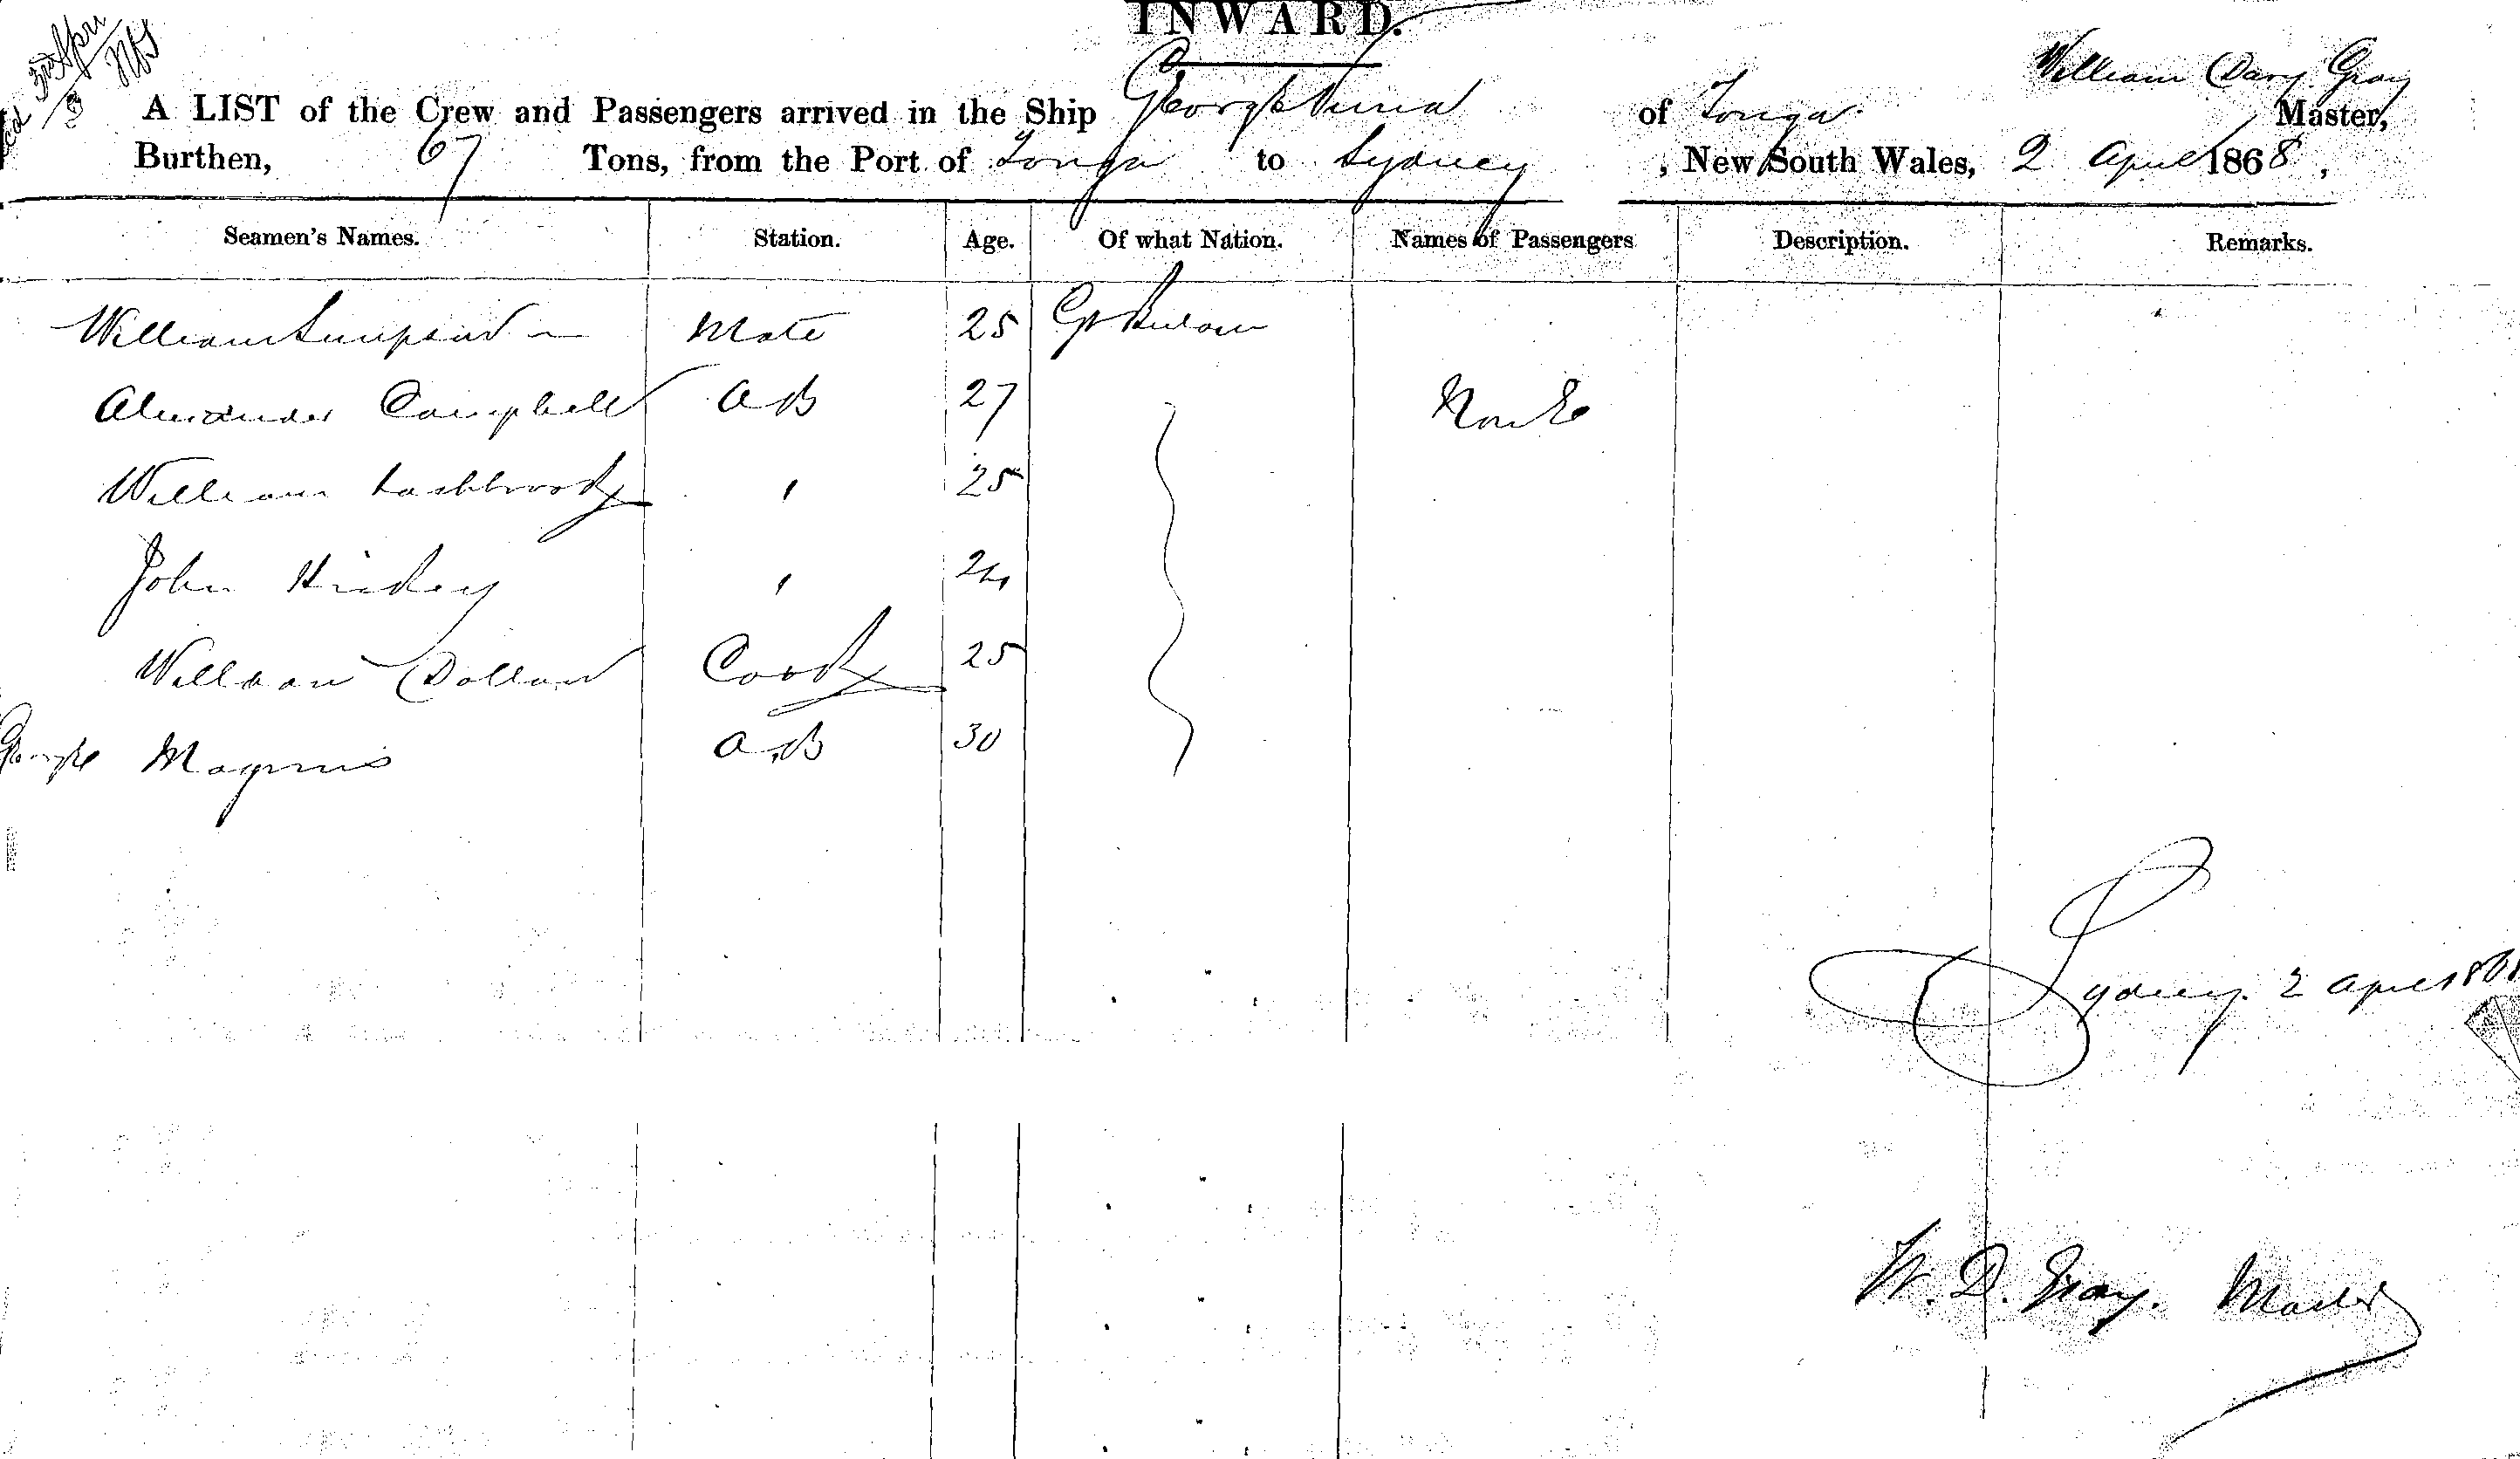 3rd Apri
INWARD.
William Davy Gray
A LIST of the Crew and Passengers arrived in the Ship of Tonga Master,
Burthen, 67 Tons, from the Port of Tonga to Sydney, New South Wales, 2 April 1868,
Seamen's Names. Station. Age. Of what Nation. Names of Passengers Description. Remarks.
William Simpson Mate 25 Gt Britain
Alexander Campbell AB 27 None
William Lashbrook " 25
John Hickey " 24
William Cook 25
George Magnus AB 30
Sydney. 2 April 1868
W. D. Gray. Master